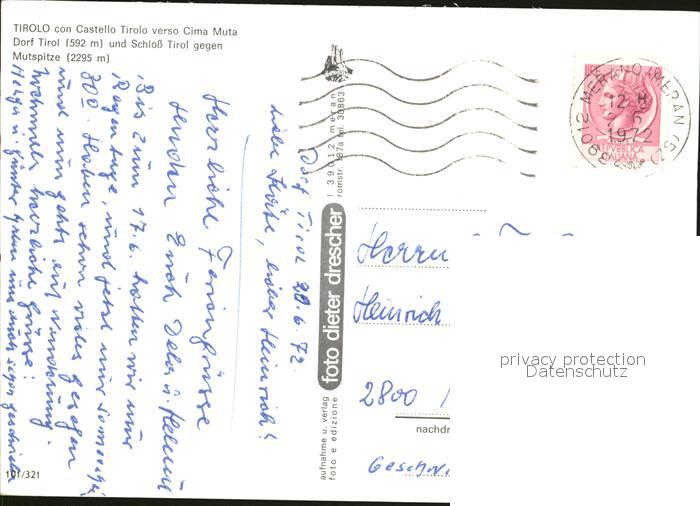 TIROLO con Castello Tirolo verso Cima Muta
Dorf Tirol (592 m) und Schloß Tirol gegen
Mutspitze (2295 m)
Dorf Tirol 20.6.72
Liebe Käthe, lieber Heinrich!
Herzliche Feriengrüsse
senden Euch
Bis zum 17.6. hatten wir nur
Regentage, und jetzt nur sonnige
30°. Haben schon vieles gesehen
und nun gehts auf Wanderung.
Nochmals herzliche Grüsse!
101/321
foto dieter drescher
I 39012 meran
romstr. 187a tel. 30863
aufnahme u. verlag
foto e edizione
39012 MERANO-MERAN (BZ)
12-H
1972
REPVBBLICA
ITALIANA
Herrn
Heinrich
2800
nachdr
Geschw.
privacy protection
Datenschutz